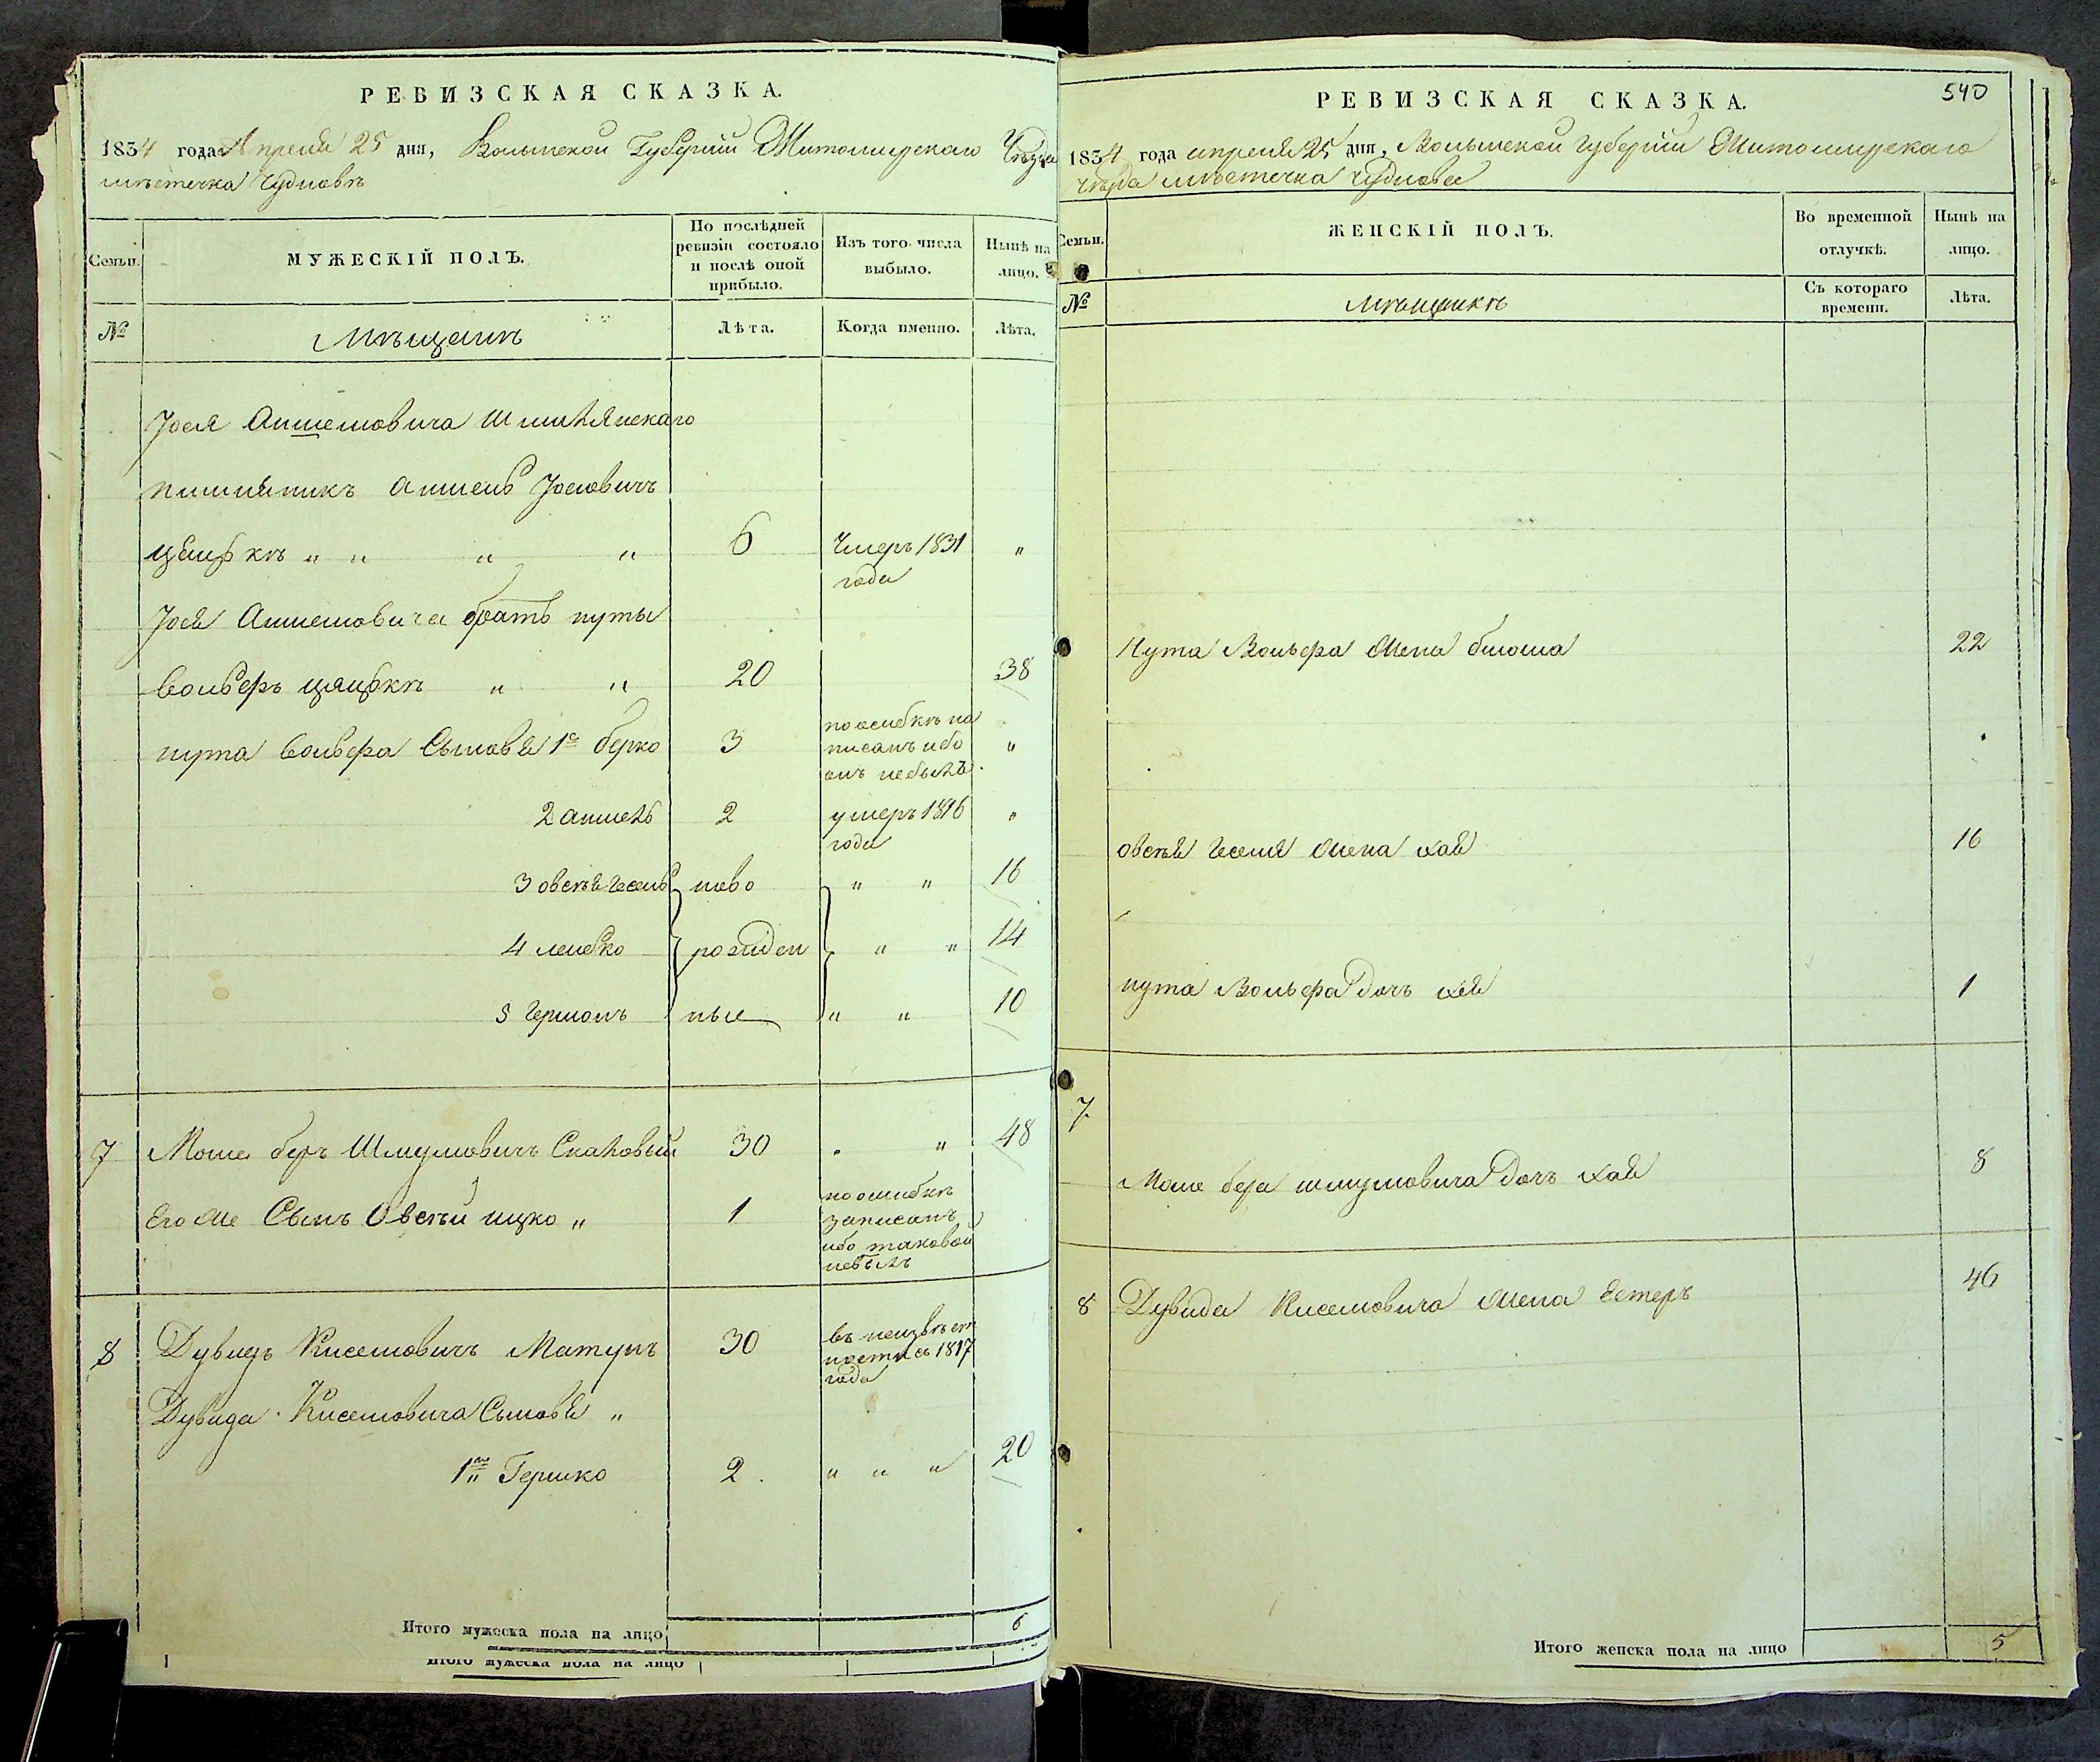 РЕВИЗСКАЯ СКАЗКА.
1834 года Апреля 25 дня, Волынской Губернии Житомирскаго Уезда
мѣстечка Чуднова
Семьи.
МУЖЕСКІЙ ПОЛЪ.
По послѣдней ревизіи состояло и послѣ оной прибыло.
Изъ того числа выбыло.
Нынѣ на лицо.
№
Мѣщанъ
Лѣта.
Когда именно.
Лѣта.
Іося Аншеловича
Аншель Іосіовичъ
6 Умеръ 1831 "
года
Іося Аншеловича братъ нута
вольфъ " " 20 38
нута вольфа Сыновья 1й берко 3 по ошибкѣ на "
писанъ ибо
онъ небылъ
2 аншель 2 умеръ 1816 "
года
3 овсѣй ново " " 16
4 лейбко рожден " " 14
5 ные " " 10
7 Моше беръ Шмулiовичъ 30 " " 48
Его же Сынъ Овсѣй ицко " 1 по ошибкѣ
записанъ
ибо таковой
небылъ
8 Дувидъ Киселіовичъ 30 въ неизвѣст
ности съ 1817
года
Дувида Киселіовича Сыновья "
1й Гершко 2. " " " 20
Итого мужеска пола на лицо 6
Итого мужеска пола на лицо
540
РЕВИЗСКАЯ СКАЗКА.
1834 года апреля 25 дня, Волынской Губерніи Житомирскаго
уезда мѣстечка Чуднова
Семьи.
ЖЕНСКІЙ ПОЛЪ.
Во временной отлучкѣ.
Нынѣ на лицо.
№
Съ котораго времени.
Лѣта.
Нута Вольфа жена блюма 22
овсѣя жена хая 16
нута Вольфа дочь хая 1
7
Моше бера шмулiовича дочь хая 8
8 Дувида Киселіовича жена Естеръ 46
Итого женска пола на лицо 5